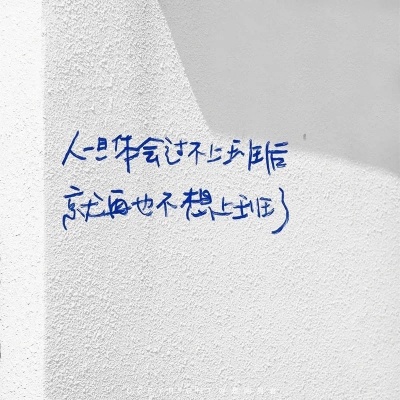 人一旦体会过不上班后
就再也不想上班了